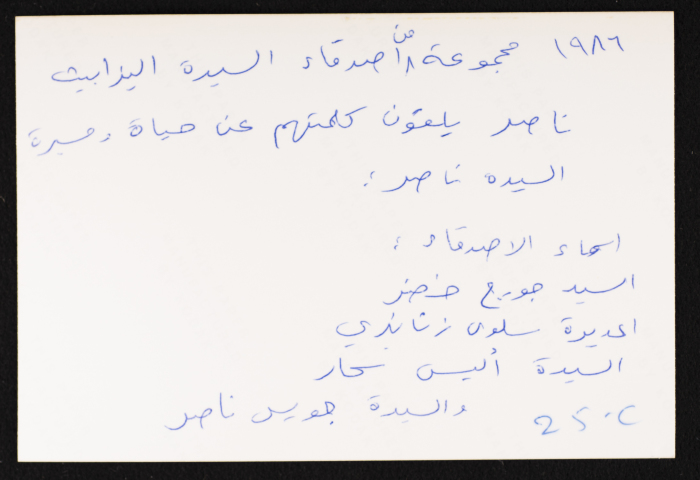 ١٩٨٦ مجموعة من أصدقاء السيدة اليزابيث
ناصر يلقون كلمتهم عن حياة ومسيرة
السيده ناصر :
اسماء الاصدقاء :
السيد جورج خضر
المديرة سلوى زنانيري
السيدة أليس سحار
والسيدة جويس ناصر